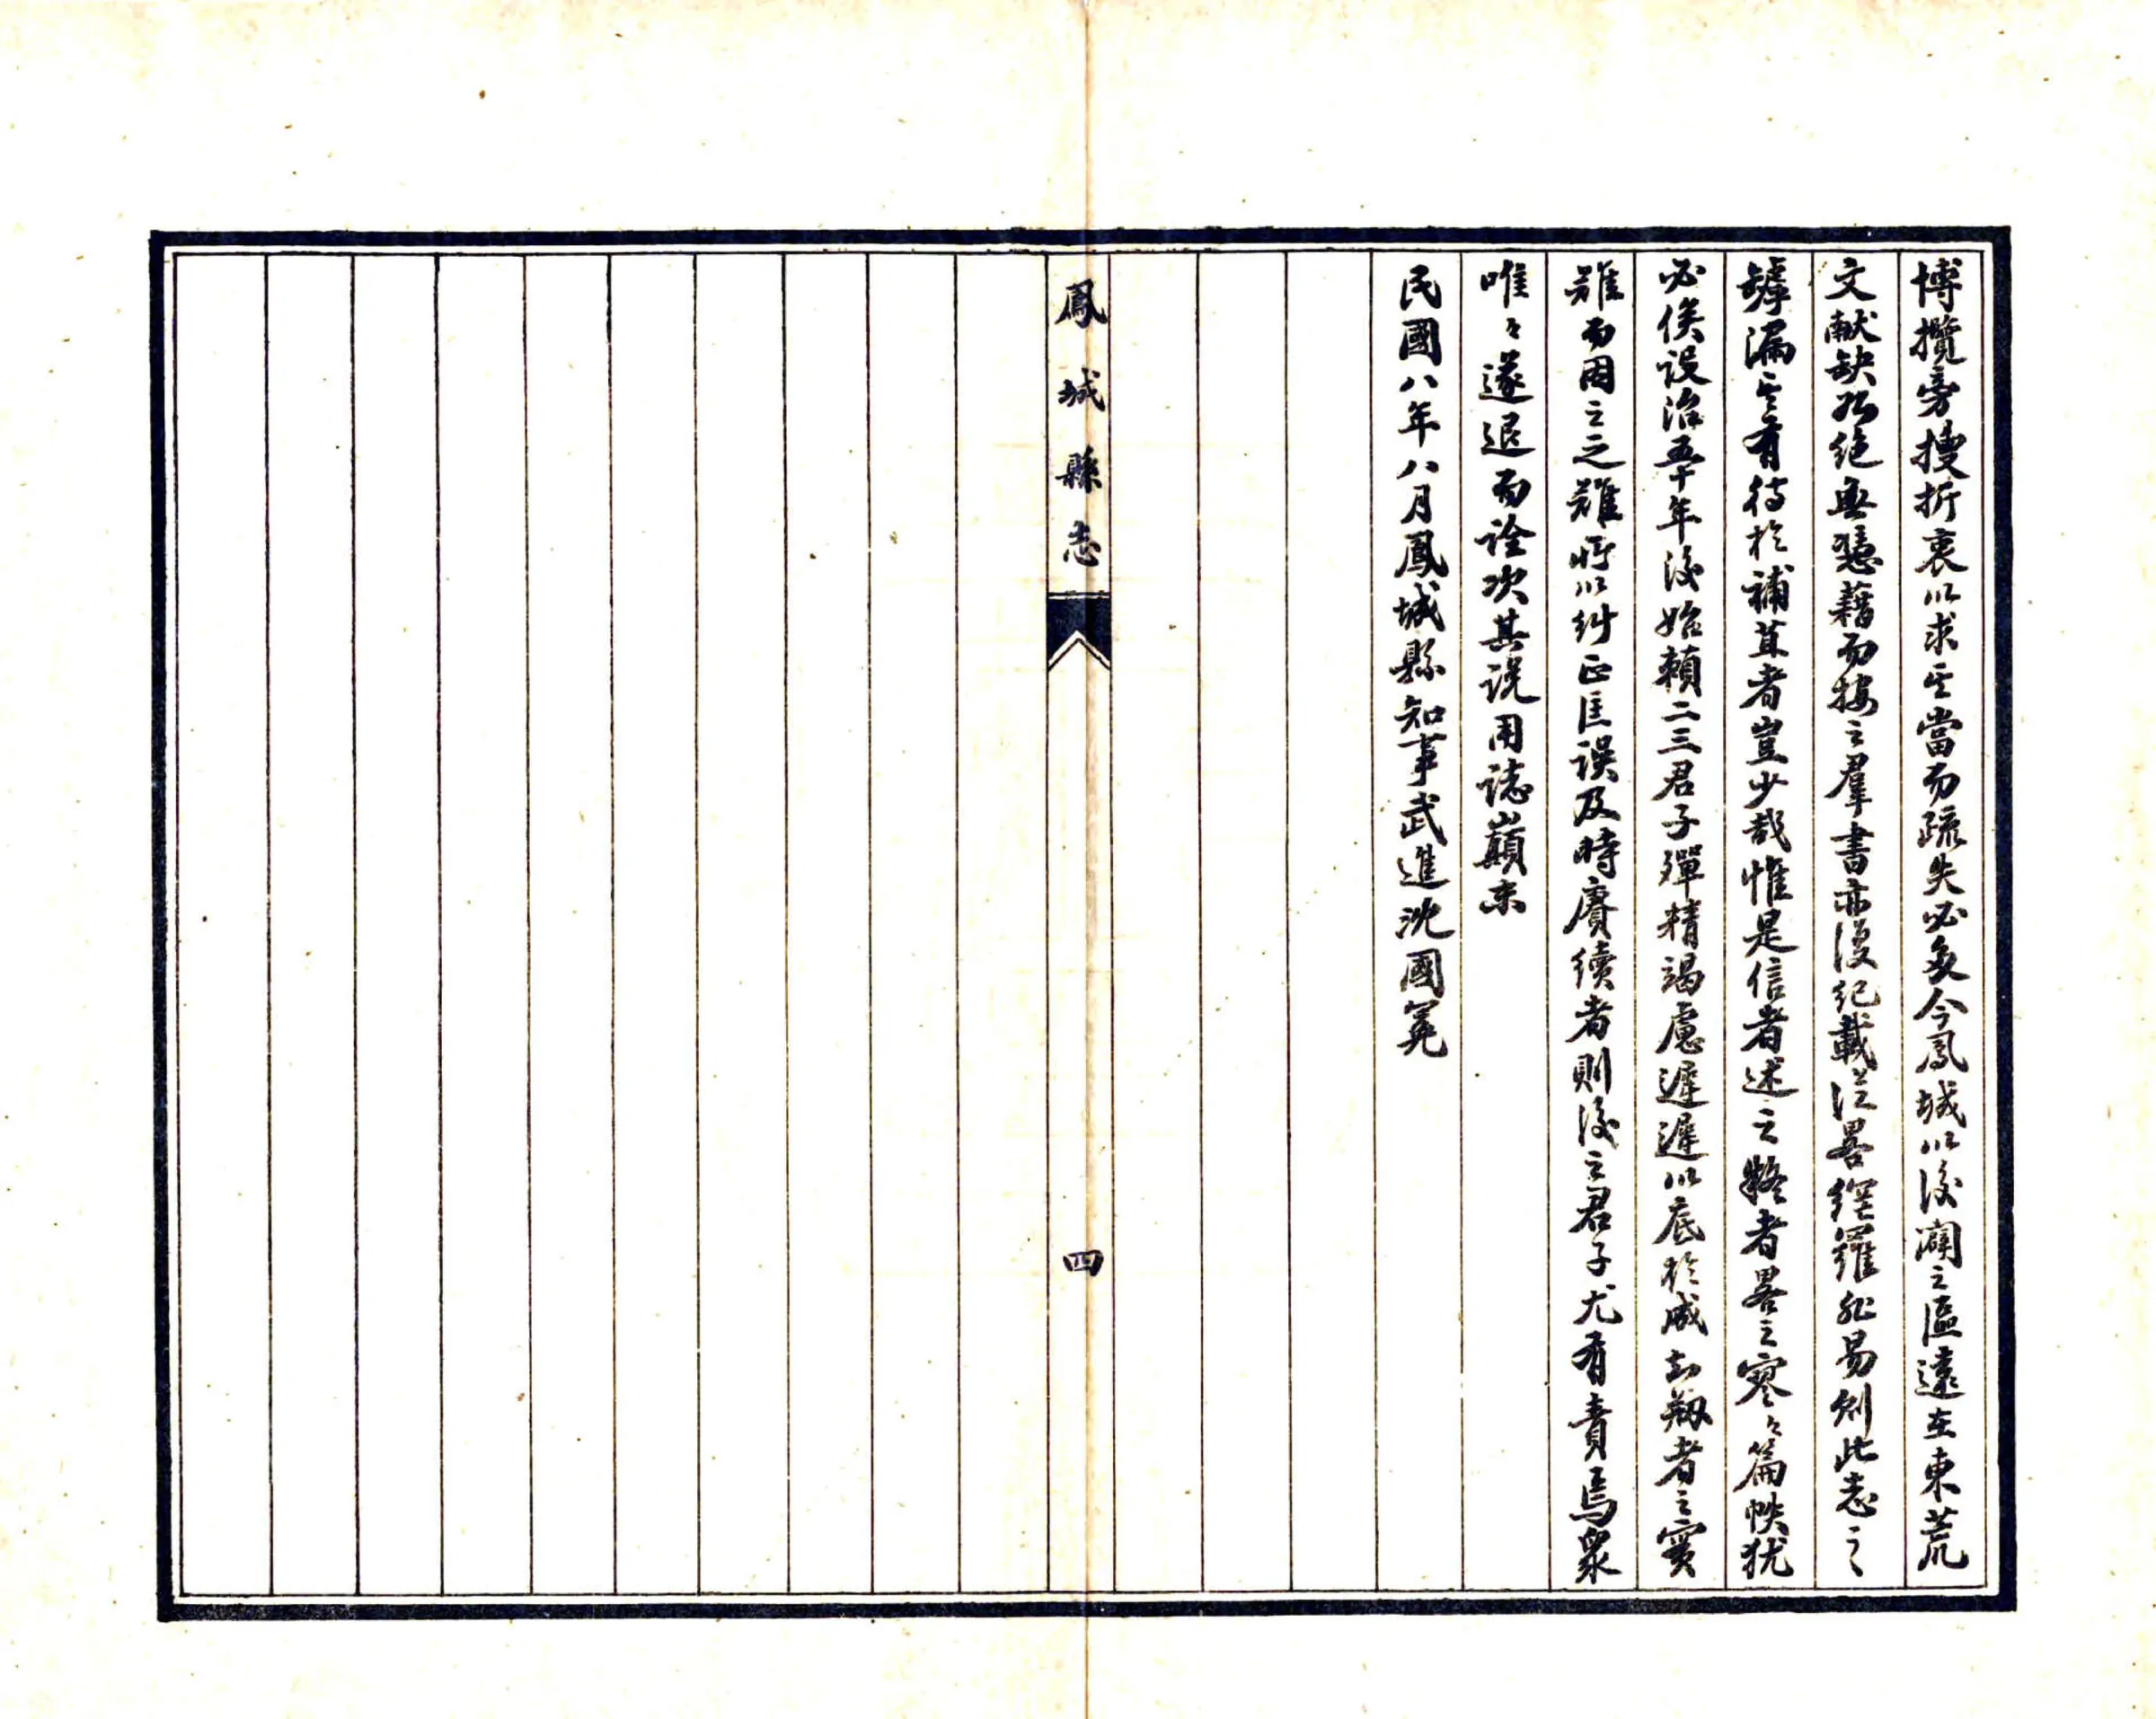 博攬旁搜折衷以求其當而疏失必多今鳳城以後闢之區遠在東荒
文獻缺如絕無憑藉而按之羣書亦復紀載從畧網羅非易則此志之
罅漏其有待於補苴者豈少哉惟是信者述之疑者畧之寥々篇帙猶
必俟設治五十年後始賴二三君子殫精竭慮遲遲以底於成知剏者之實
難而因之之難所以糾正匡誤及時賡續者則後之君子尤有責焉眾
唯々遂退而詮次其說用誌巔末
民國八年八月鳳城縣知事武進沈國冕
鳳城縣志
四